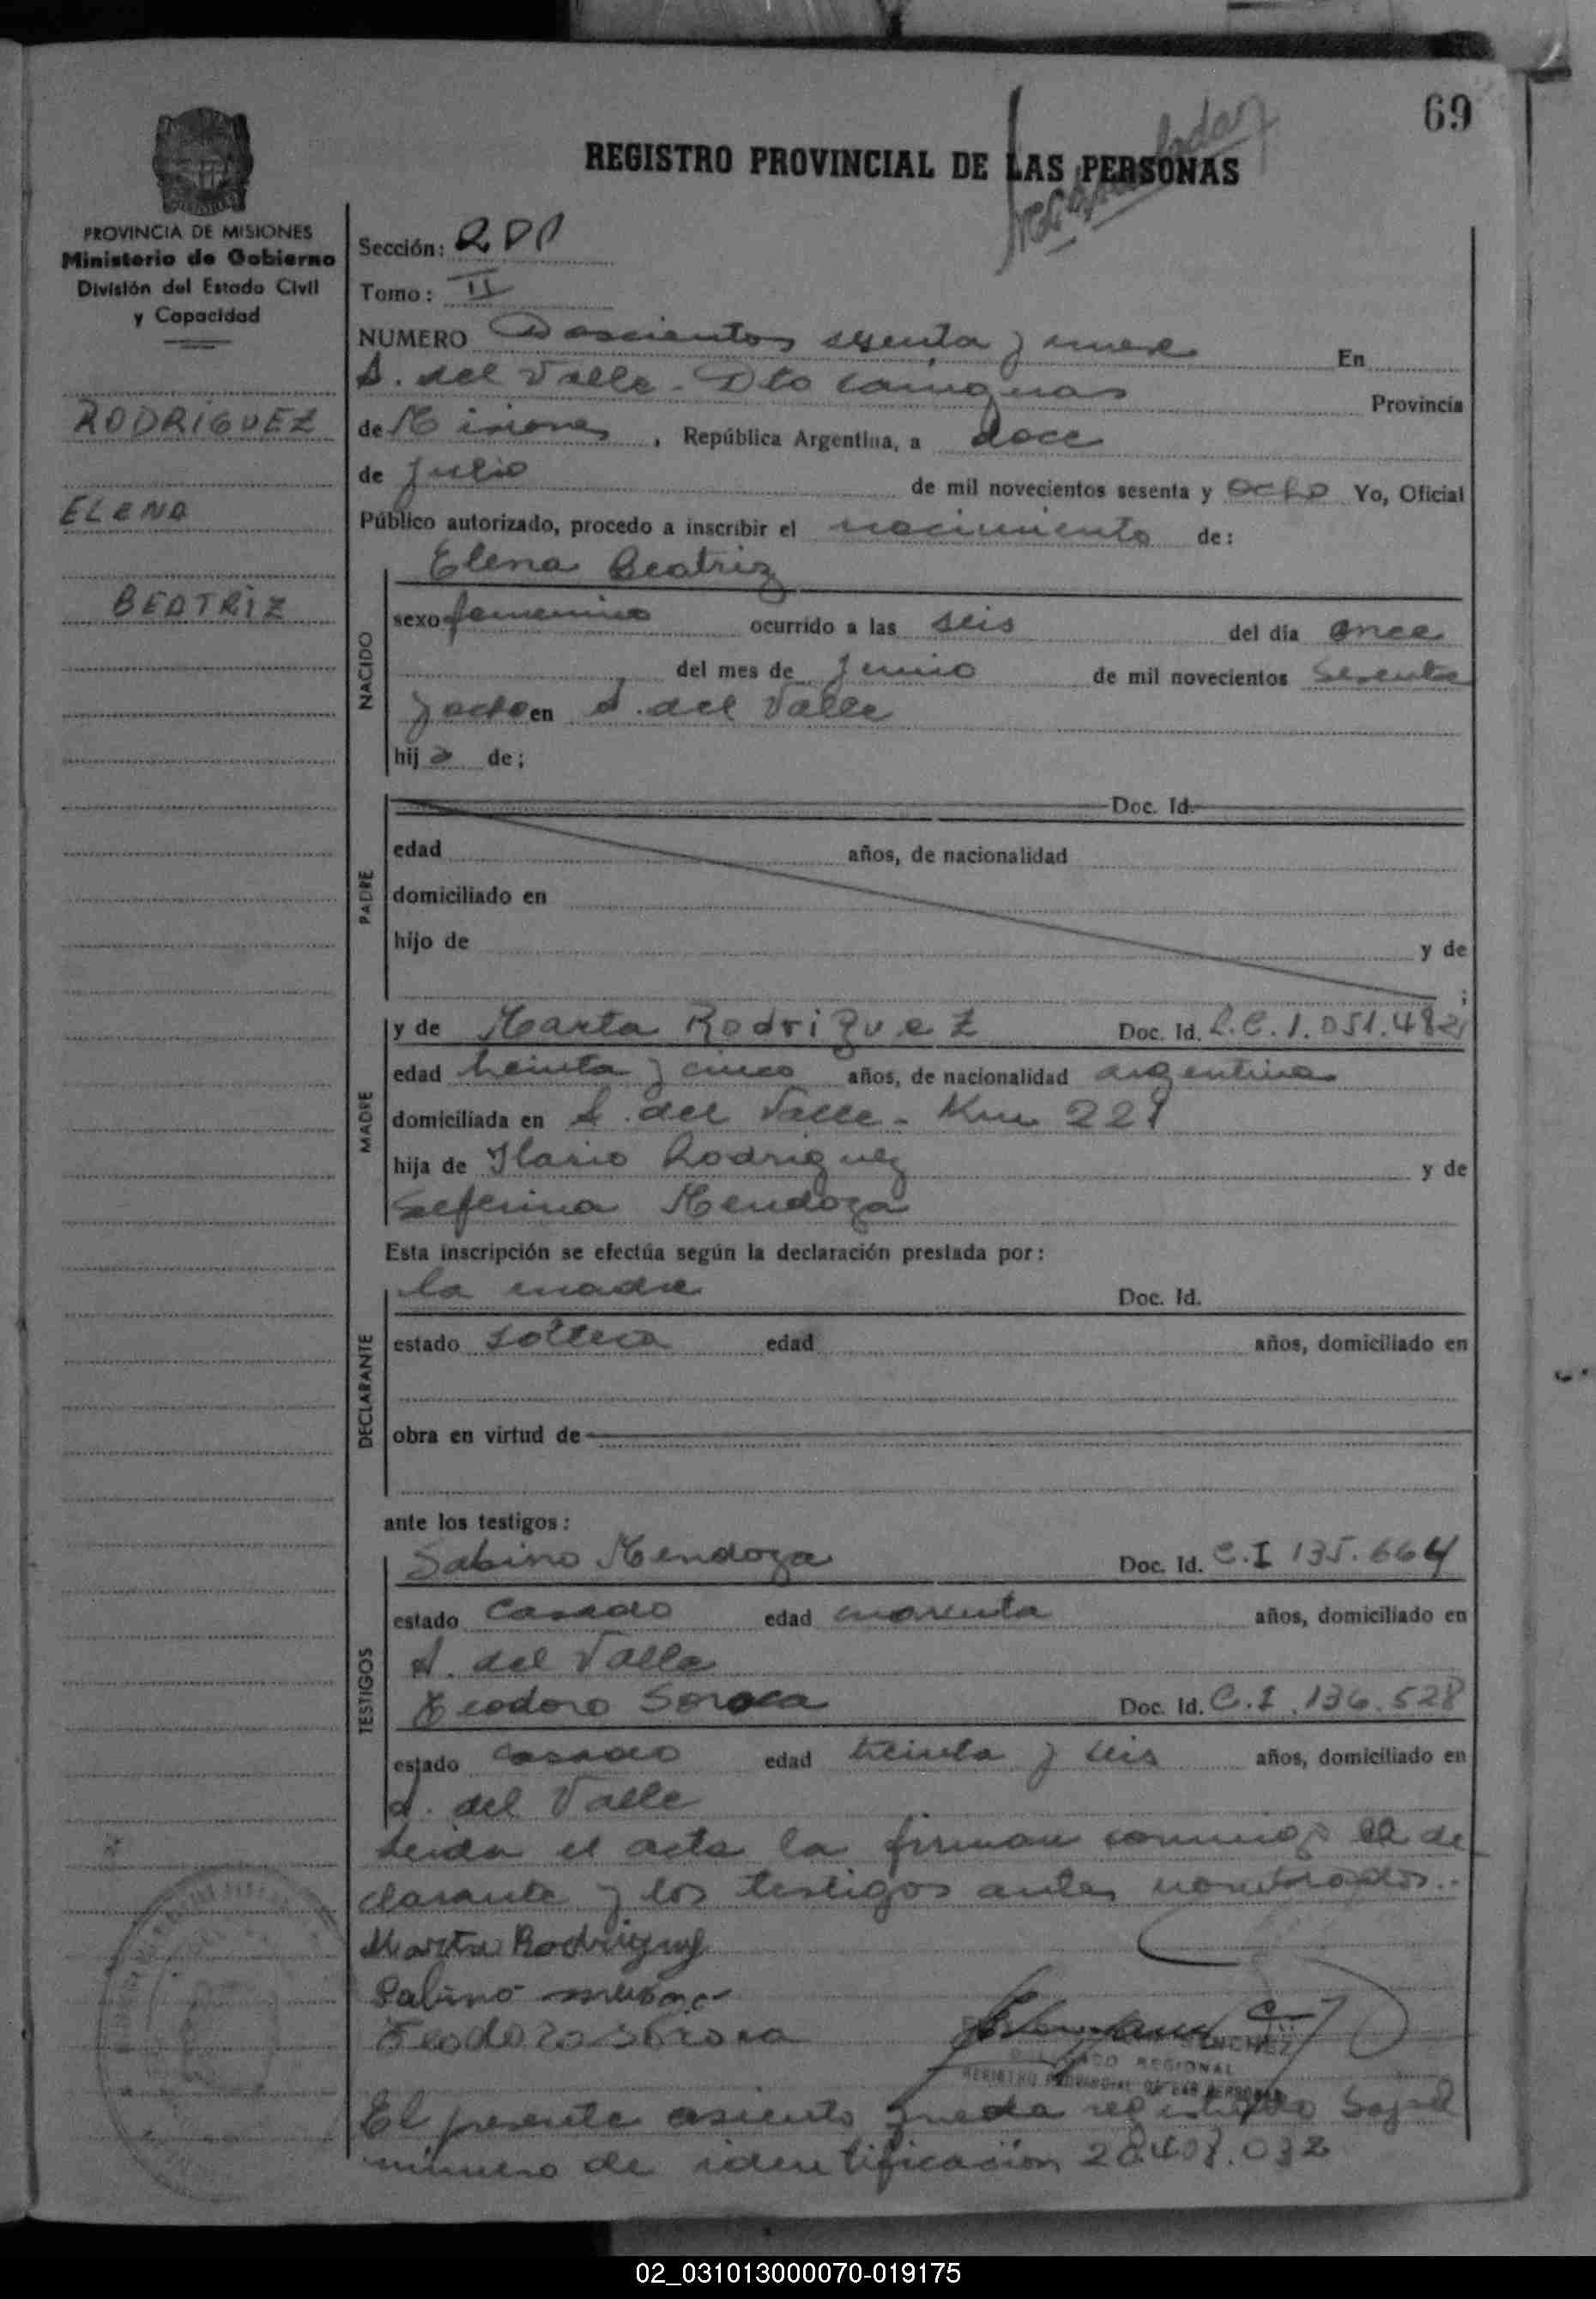 69
REGISTRO PROVINCIAL DE LAS PERSONAS
PROVINCIA DE MISIONES
Ministerio de Gobierno
División del Estado Civil
y Capacidad
RODRÍGUEZ
ELENA
BEATRIZ
Sección:
Tomo: II
NUMERO Doscientos sesenta y nueve En
A. del Valle - Dto Cainguas Provincia
de Misiones, República Argentina, a doce
de Julio de mil novecientos sesenta y ocho Yo, Oficial
Público autorizado, procedo a inscribir el nacimiento de:
Elena Beatriz
NACIDO
sexo femenino ocurrido a las seis del día once
del mes de Junio de mil novecientos sesenta
y ocho en A. del Valle
hija de;
PADRE
Doc. Id.
edad años, de nacionalidad
domiciliado en
hijo de y de
;
MADRE
y de Marta Rodriguez Doc. Id. L.C. 1.051.482
edad treinta y cinco años, de nacionalidad argentina
domiciliada en A. del Valle - Km 221
hija de Ilario Rodriguez y de
Seferina Mendoza
Esta inscripción se efectúa según la declaración prestada por:
DECLARANTE
la madre Doc. Id.
estado soltera edad años, domiciliado en
obra en virtud de
ante los testigos:
TESTIGOS
Sabino Mendoza Doc. Id. C.I 135.664
estado casado edad cuarenta años, domiciliado en
A. del Valle
Teodoro Doc. Id. C.I. 136.528
estado casado edad treinta y seis años, domiciliado en
A. del Valle
Leida el acta la firman conmigo el de
clarante y los testigos antes nombrados.-
Marta Rodriguez
Sabino
Teodoro
SANCHEZ
DELEGADO REGIONAL
REGISTRO PROVINCIAL DE LAS PERSONAS
El presente asiento queda registrado bajo el
número de identificación 20.408.032
02_031013000070-019175